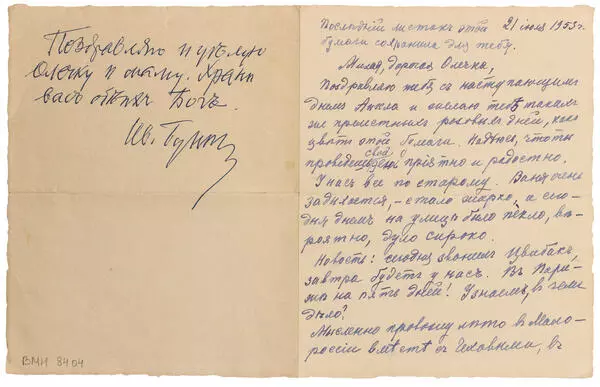 Поздравляю и цѣлую
Олечку и маму. Храни
васъ обѣихъ Богъ.
Ив. Бунин
ВМН 8404
Послѣднiй листокъ этой 21 iюля 1953 г.
бумаги сохранила для тебя.
Милая, дорогая Олечка,
Поздравляю тебя съ наступающимъ
днемъ Ангела и желаю тебѣ такихъ
же прiятныхъ розовыхъ дней, какъ
цвѣтъ этой бумаги. Надѣюсь, что ты
проведешь свой день прiятно и радостно.
У насъ все по старому. Ваня очень
задыхается, - стало жарко, а сего-
дня днемъ на улицѣ было пекло, вѣ-
роятно, дуло сироко.
Новость: сегодня звонилъ Цвибакъ,
завтра будетъ у насъ. Въ Пари-
жѣ на пять дней! Узнаемъ, въ чемъ
дѣло?
Мысленно провожу лѣто в Мало-
россiи вмѣстѣ съ Чеховыми, въ